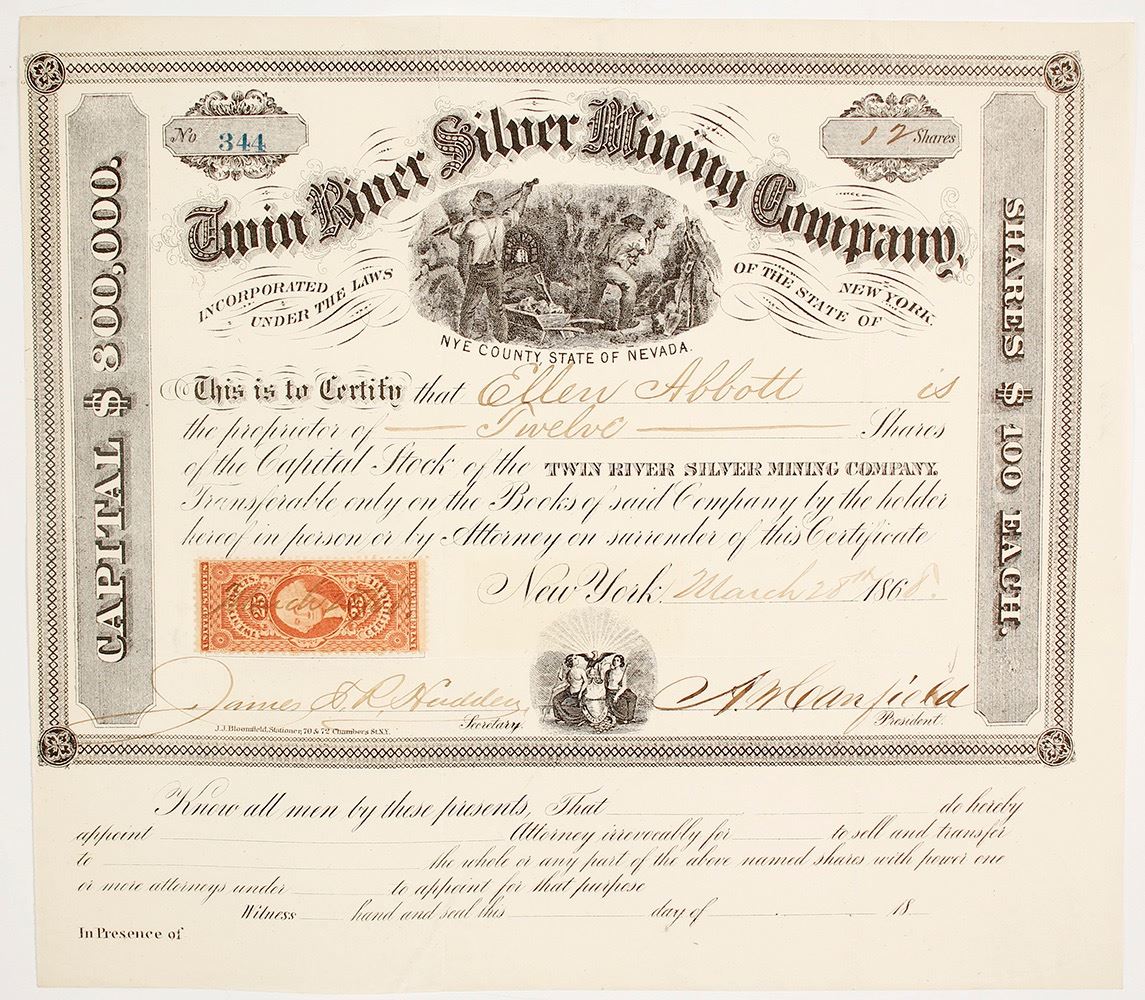 No 344
12 Shares
Twin River Silver Mining Company,
INCORPORATED UNDER THE LAWS
OF THE STATE OF NEW YORK.
NYE COUNTY, STATE OF NEVADA.
CAPITAL $300,000.
SHARES $100 EACH.
This is to Certify that Ellen Abbott is
the proprietor of Twelve Shares
of the Capital Stock of the TWIN RIVER SILVER MINING COMPANY.
Transferable only on the Books of said Company by the holder
hereof in person or by Attorney on surrender of this Certificate
New York, March 28th 1868.
25 25
James Secretary.
Canfield President.
J.J. Bloomfield, Stationer, 70 & 72 Chambers St. N.Y.
Know all men by these presents, That do hereby
appoint Attorney irrevocably for to sell and transfer
to the whole or any part of the above named shares with power one
or more attorneys under to appoint for that purpose
Witness hand and seal this day of 18
In Presence of